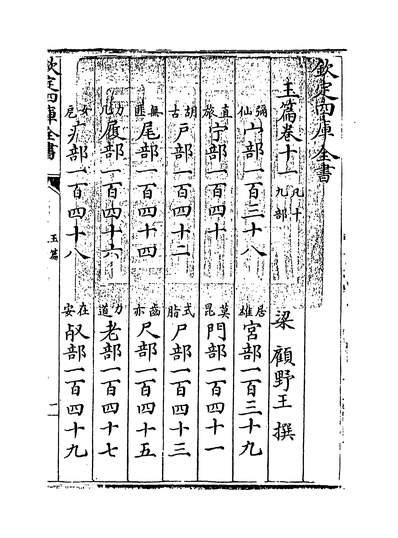 欽定四庫全書
玉篇卷十一 凡十九部
梁 顧野王 撰
彌仙宀部一百三十八
居雄宮部一百三十九
直旅宁部一百四十
莫昆門部一百四十一
胡古戶部一百四十二
式脂尸部一百四十三
無匪尾部一百四十四
齒亦尺部一百四十五
力几履部一百四十六
力道老部一百四十七
女戹疒部一百四十八
在安𣦼部一百四十九
欽定四庫全書
玉篇
一